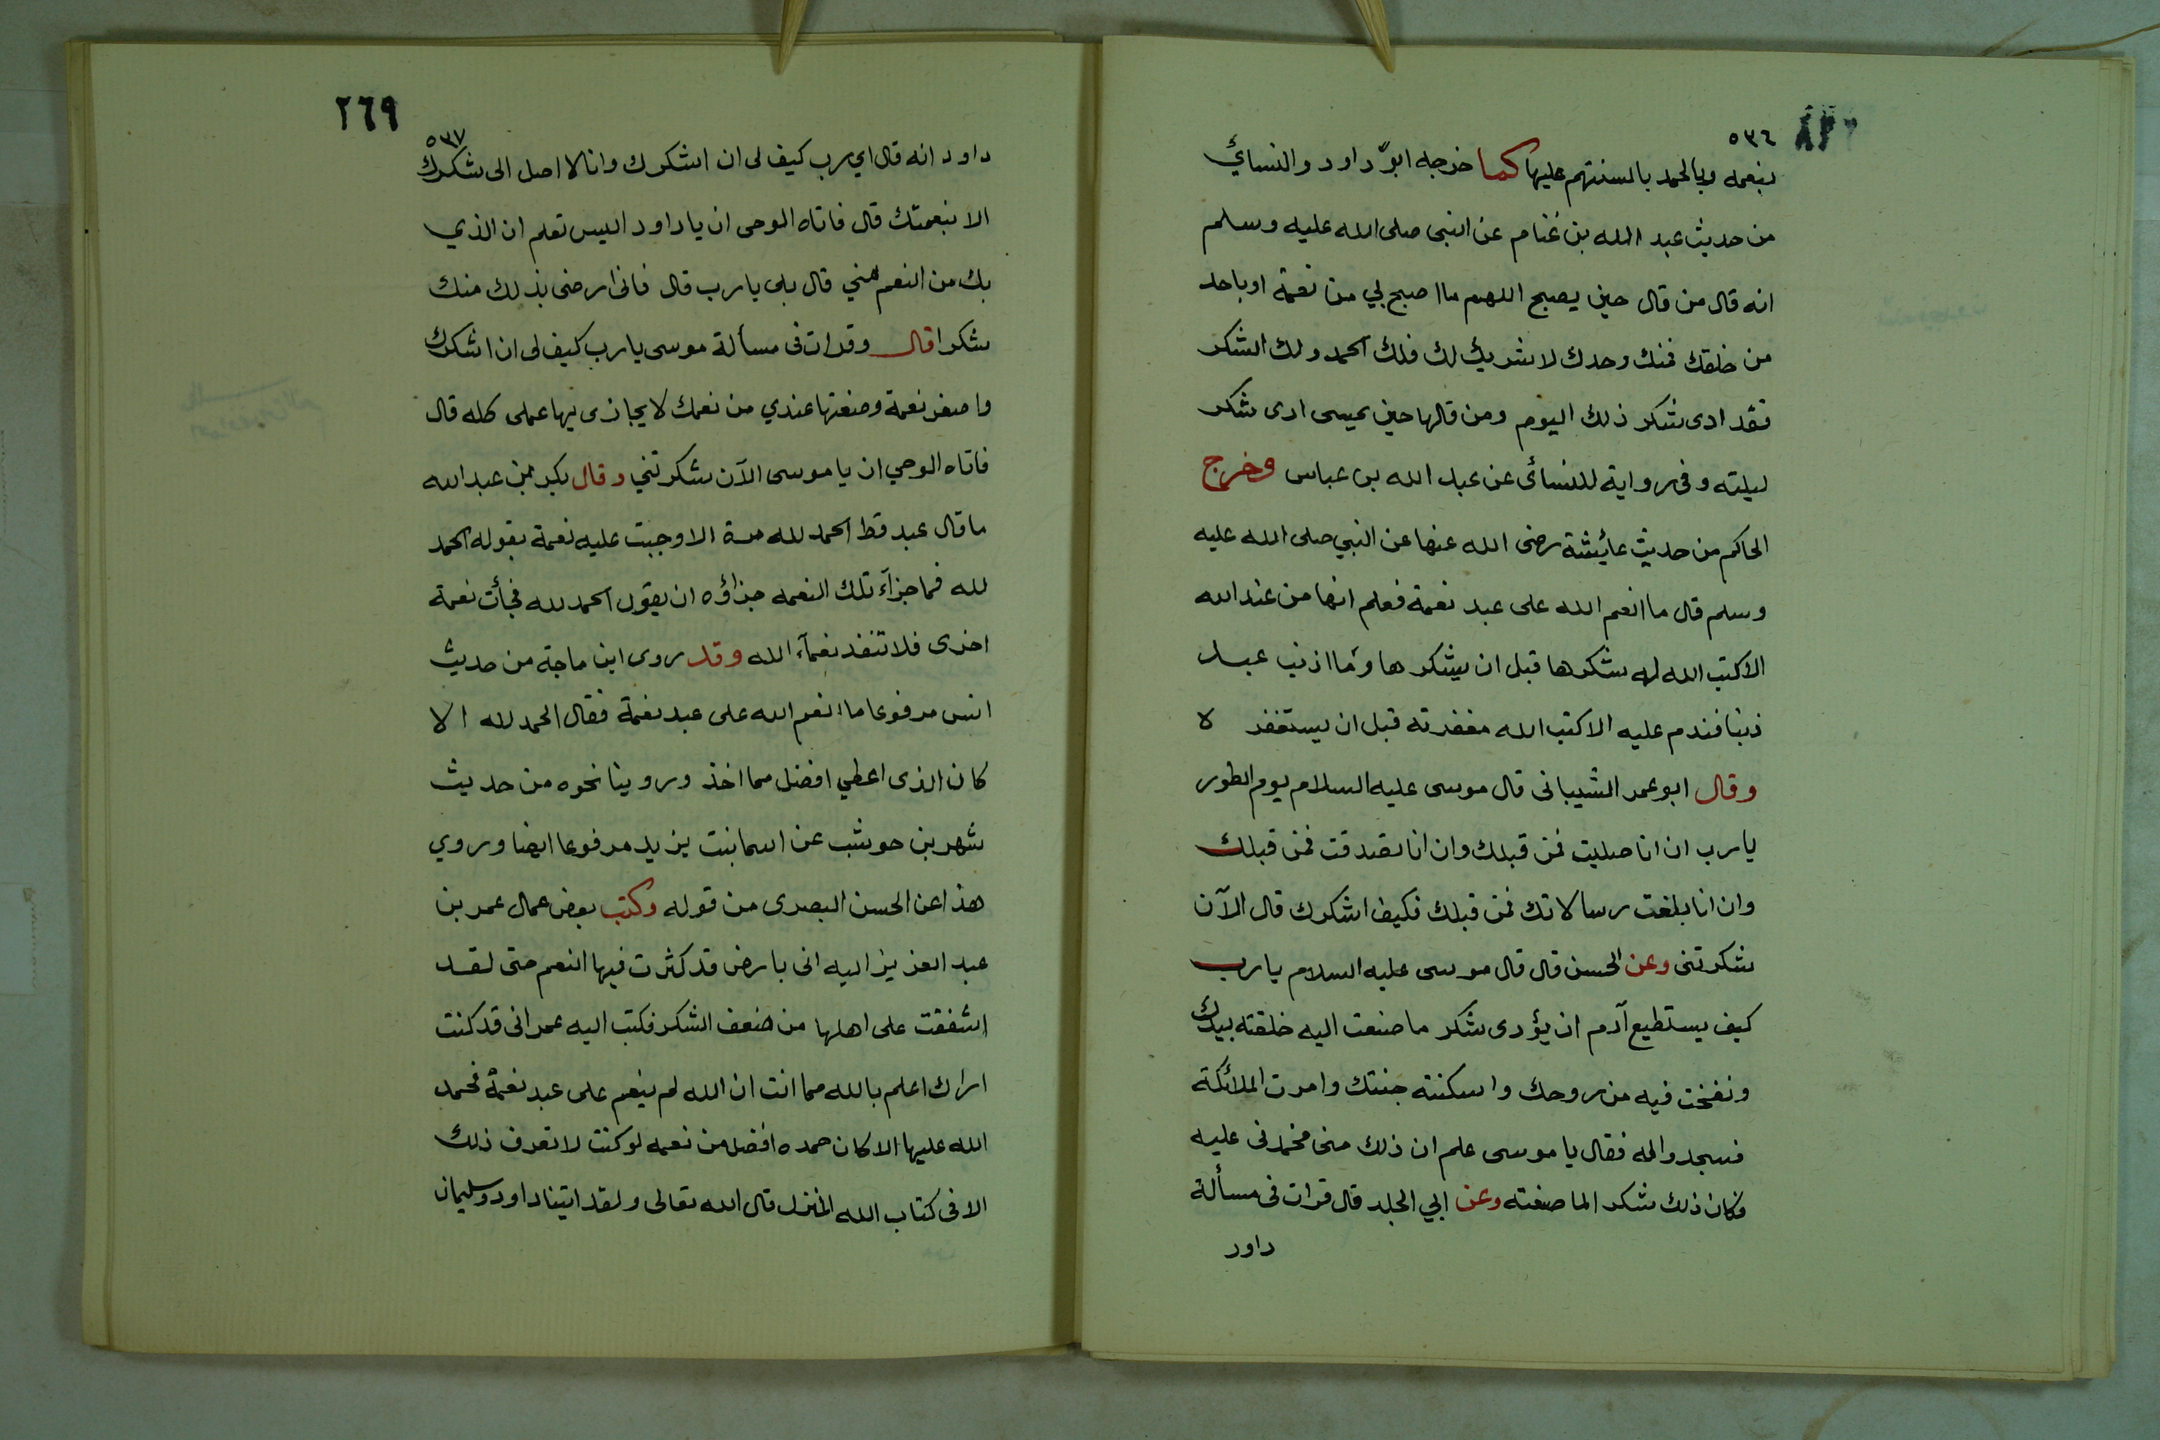 ٥٣٦
بنعمه وبالحمد بالسنتهم عليها كما خرجه ابو داود والنسائي
من حديث عبد الله بن غنام عن النبى صلى الله عليه وسلم
انه قال من قال حين يصبح اللهم ما اصبح لي من نعمة او باحد
من خلقك فمنك وحدك لا شريك لك فلك الحمد ولك الشكر
فقد ادى شكر ذلك اليوم ومن قالها حين يمسى ادى شكر
ليلته وفى رواية للنسائى عن عبد الله بن عباس وخرج
الحاكم من حديث عائيشة رضى الله عنها عن النبي صلى الله عليه
وسلم قال ما انعم الله على عبد نعمة فعلم انها من عند الله
الا كتب الله له شكرها قبل ان يشكرها وما اذنب عبد
ذنبا فندم عليه الا كتب الله مغفرته قبل ان يستغفر لا
وقال ابو عمر الشيبانى قال موسى عليه السلام يوم الطور
يا رب ان انا صليت فمن قبلك وان انا تصدقت فمن قبلك
وان انا بلغت رسالاتك فمن قبلك فكيف اشكرك قال الآن
شكرتنى وعن الحسن قال قال موسى عليه السلام يا رب
كيف يستطيع آدم ان يؤدى شكر ما صنعت اليه خلقته بيدك
ونفخت فيه من روحك واسكنته جنتك وامرت الملائكة
فسجدوا له فقال يا موسى علم ان ذلك منى فحمدنى عليه
فكان ذلك شكر الما صنعته وعن ابي الجلد قال قرات فى مسألة
داود
٢٦٩
٥٣٧
داود انه قال اي رب كيف لى ان اشكرك وانا لا اصل الى شكرك
الا بنعمتك قال فاتاه الوحى ان يا داود اليس تعلم ان الذي
بك من النعم مني قال بلى يا رب قال فانى ارضى بذلك منك
شكرا قال وقرات فى مسألة موسى يا رب كيف لى ان اشكرك
واصغر نعمة وضعتها عندي من نعمك لا يجازى بها عملى كله قال
فاتاه الوحي ان يا موسى الآن شكرتني وقال بكر بن عبد الله
ما قال عبد قط الحمد لله مرة الا وجبت عليه نعمة بقوله الحمد
لله فما جزآء تلك النعمه جزاؤه ان يقول الحمد لله فجأت نعمة
اخرى فلا تنفد نعمآء الله وقد روى ابن ماجة من حديث
انس مرفوعا ما انعم الله على عبد نعمة فقال الحمد لله الا
كان الذى اعطي افضل مما اخذ وروينا نحوه من حديث
شهر بن حوشب عن اسما بنت يزيد مرفوعا ايضا وروي
هذا عن الحسن البصرى من قوله وكتب بعض عمال عمر بن
عبد العزيز اليه انى بارض قد كثرت فيها النعم حتى لقد
اشفقت على اهلها من ضعف الشكر فكتب اليه عمر انى قد كنت
اراك اعلم بالله مما انت ان الله لم ينعم على عبد نعمة فحمد
الله عليها الا كان حمده افضل من نعمه لو كنت لا تعرف ذلك
الا فى كتاب الله المنزل قال الله تعالى ولقد اتينا داود وسليمان